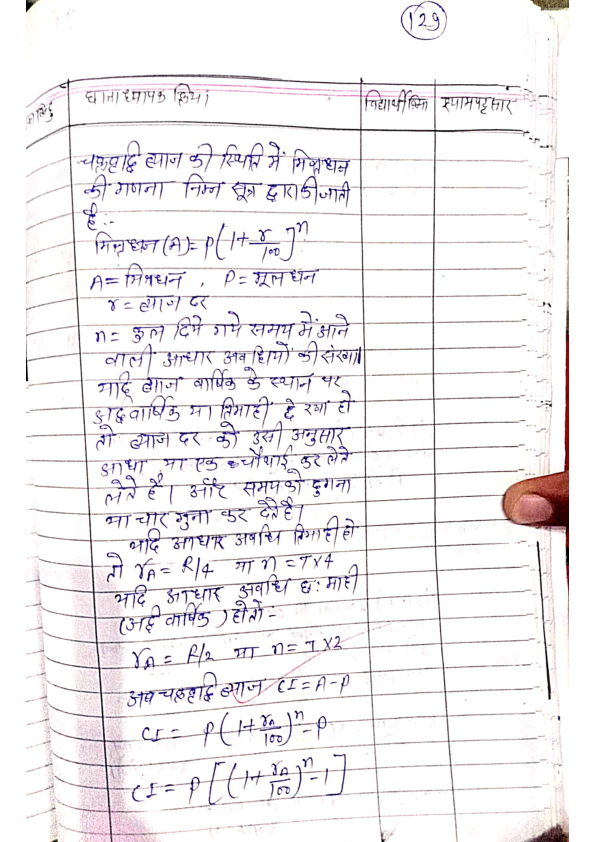 129
छात्राध्यापक क्रिया।
विद्यार्थी क्रिया
श्यामपट्ट सार
चक्रवृद्धि ब्याज की स्थिति में मिश्रधन
की गणना निम्न सूत्र द्वारा की जाती
है:-
मिश्रधन (A) = P(1+r/100)^n
A = मिश्रधन , P = मूलधन
r = ब्याज दर
n = कुल दिये गये समय में आने
वाली आधार अवधियों की संख्या।
यदि ब्याज वार्षिक के स्थान पर
अर्द्धवार्षिक या तिमाही दे रखा हो
तो ब्याज दर को उसी अनुसार
आधा या एक चौथाई कर लेते
लेते है। और समय को दुगना
या चार गुना कर देते है।
यदि आधार अवधि तिमाही हो
तो rA = R/4 या n = T×4
यदि आधार अवधि छ: माही
(अर्द्ध वार्षिक) हो तो -
rA = R/2 या n = T×2
अब चक्रवृद्धि ब्याज CI = A-P
CI = P(1+rA/100)^n - P
CI = P[(1+rA/100)^n - 1]